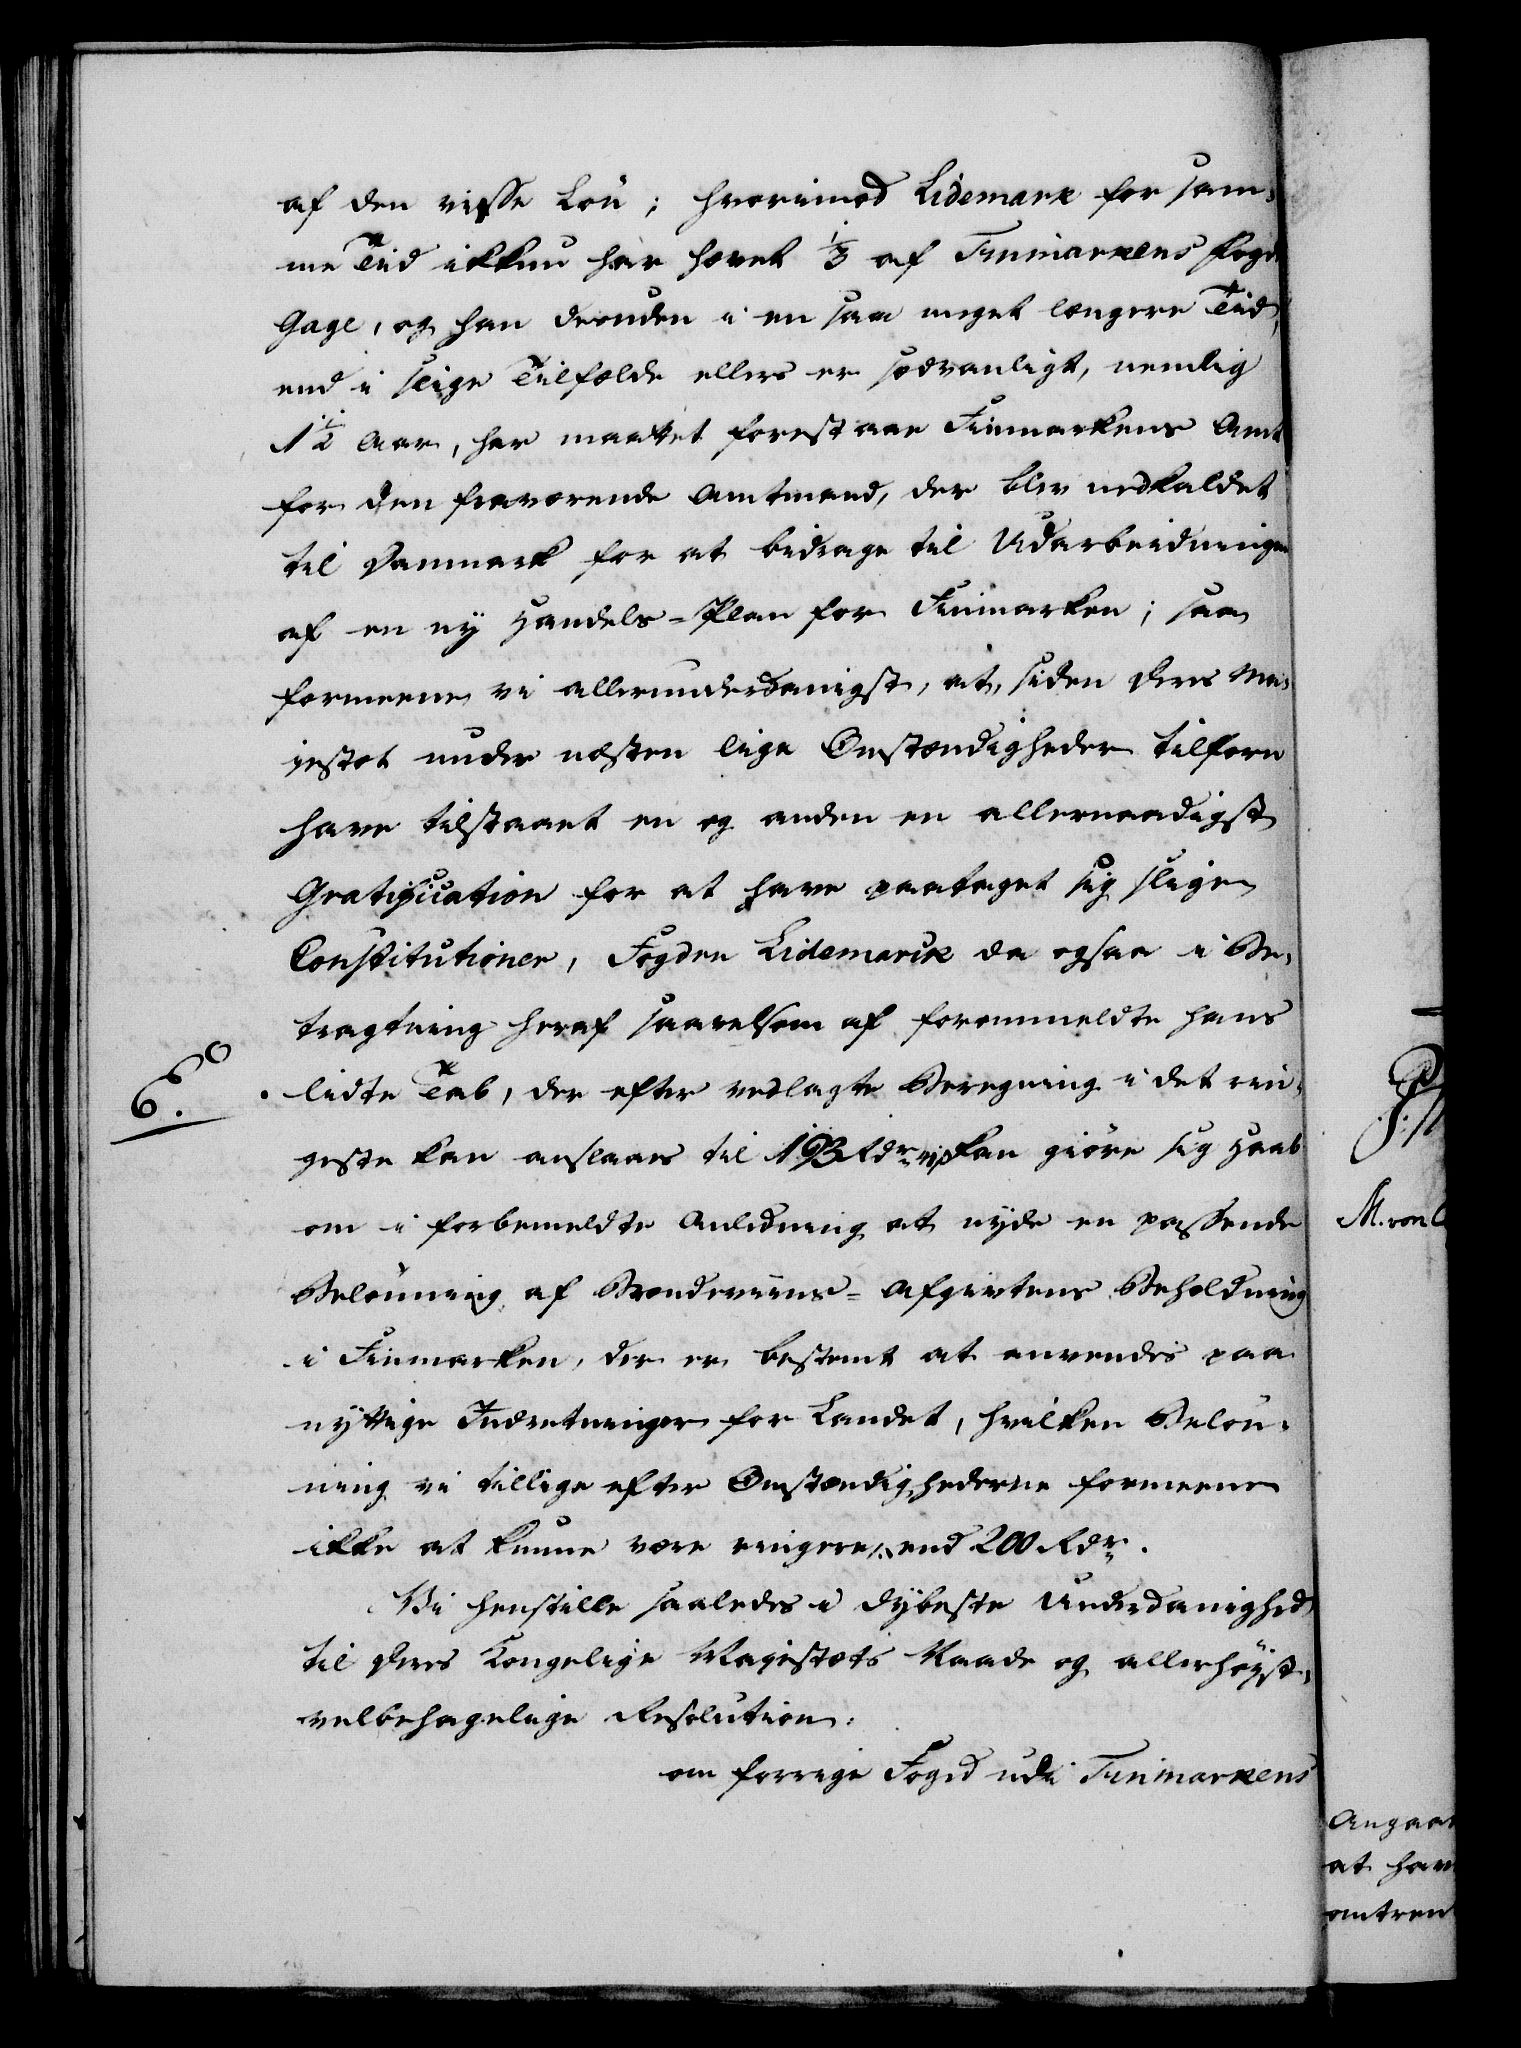 af den visse Løn; hvorimod Lidemark for sam¬
me Tiid ikkun har hævet 1/3 af Finmarkens Fogd
Gage, og han desuden i en saa meget længere Tiid,
end i slige Tilfælde ellers er sædvanligt, nemlig
1 1/2 Aar, har maattet forestaae Finmarkens Amt
for den fraværende Amtmand, der blev nedkaldet
til Danmark for at bidrage til Udarbeidningen
af en ny Handels-Plan for Finmarken; saa
formeene vi allerunderdanigst, at, siden Deres Ma¬
jestæt under næsten lige Omstændigheder tilforn
have tilstaaet en og anden en allernaadigst
Gratification for at have paataget sig slige
Constitutioner, Fogden Lidemark da ogsaa i Be¬
tragtning heraf saavelsom af forommeldte hans
6.º
lidte Tab, der efter vedlagte Beregning i det rin¬
geste kan anslaaes til 193 Rdr., kan giøre sig Haab
om i forbemeldte Anledning at nyde en passende
Belønning af Brændeviins-Afgivtens Beholdning
i Finmarken, der er bestemt at anvendes paa
nyttige Indretninger for Landet, hvilken Beløn¬
ning vi tillige efter Omstændighederne formeene
ikke at kunne være ringere, end 200 Rdr.
Vi henstille saaledes i dybeste Underdanighed
til Deres Kongelige Majestæts Naade og allerhøyst¬
velbehagelige Resolution:
om forrige Foged udi Finmarkens
M. von
Angaae
at hav
omtren